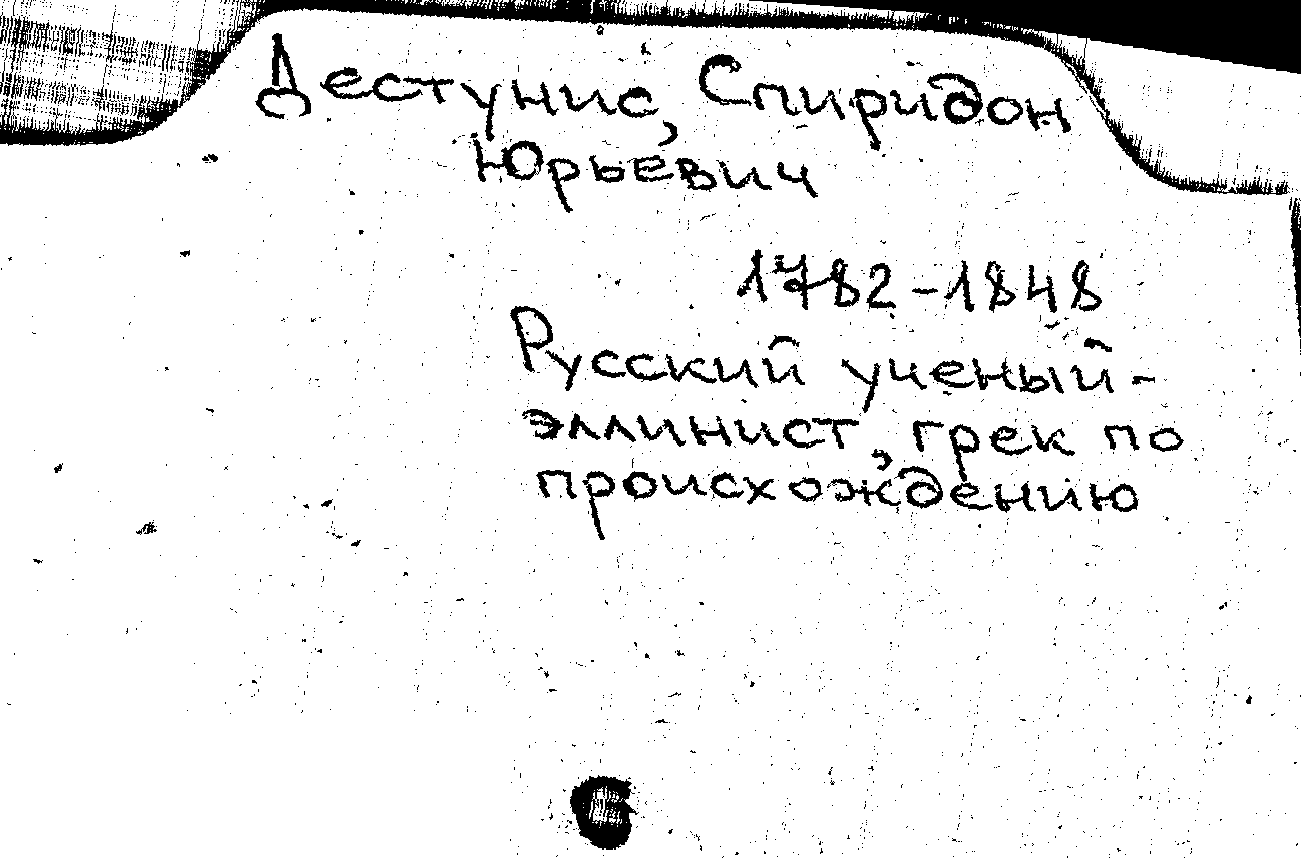 Дестунис, Спиридон
Юрьевич
1782-1848
Русский ученый-
эллинист, грек по
происхождению